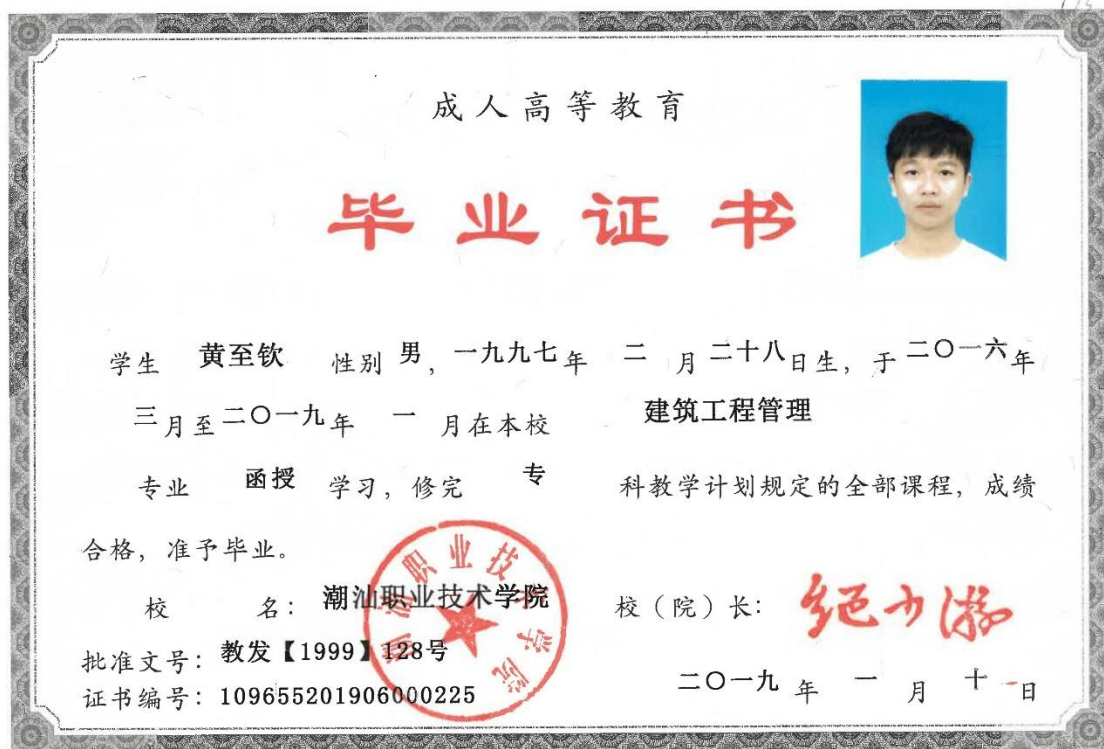 成人高等教育
毕业证书
学生 黄至钦 性别 男，一九九七年 二 月二十八日生，于二〇一六年
三月至二〇一九年 一 月在本校 建筑工程管理
专业 函授 学习，修完 专 科教学计划规定的全部课程，成绩
合格，准予毕业。
校 名：潮汕职业技术学院 校（院）长：
批准文号：教发【1999】128号
证书编号：109655201906000225 二〇一九 年 一 月 十一日
潮汕职业技术学院